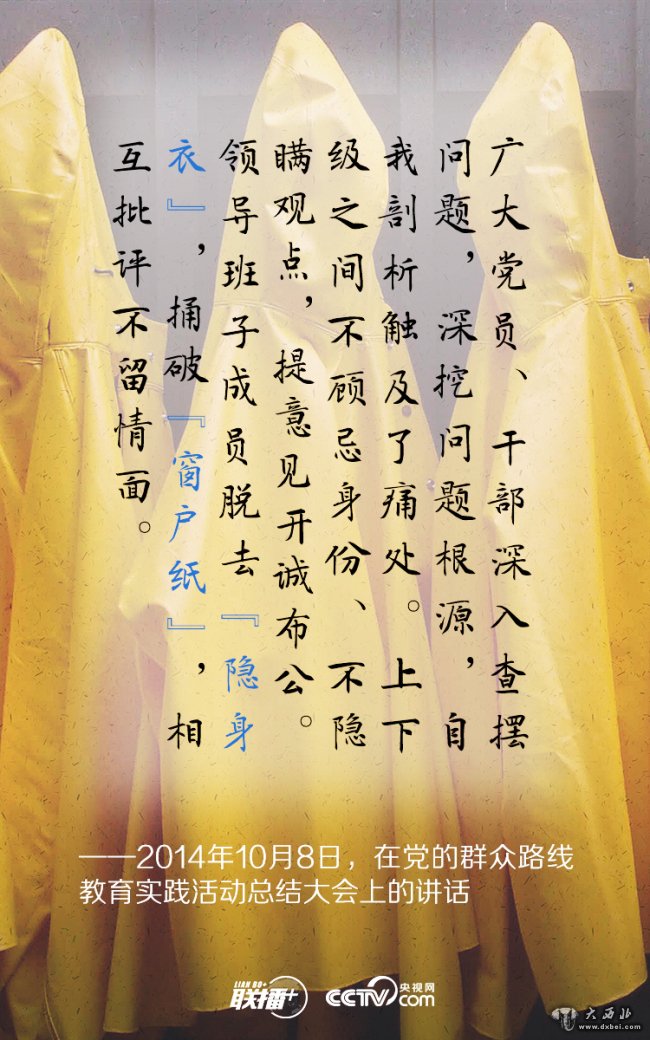 广大党员、干部深入查摆
问题，深挖问题根源，自
我剖析触及了痛处。上下
级之间不顾忌身份、不隐
瞒观点，提意见开诚布公。
领导班子成员脱去『隐身
衣』，捅破『窗户纸』，相
互批评不留情面。
——2014年10月8日，在党的群众路线
教育实践活动总结大会上的讲话
LIAN BO+
联播+
CCTV.com 央视网
大西北
www.dxbei.com